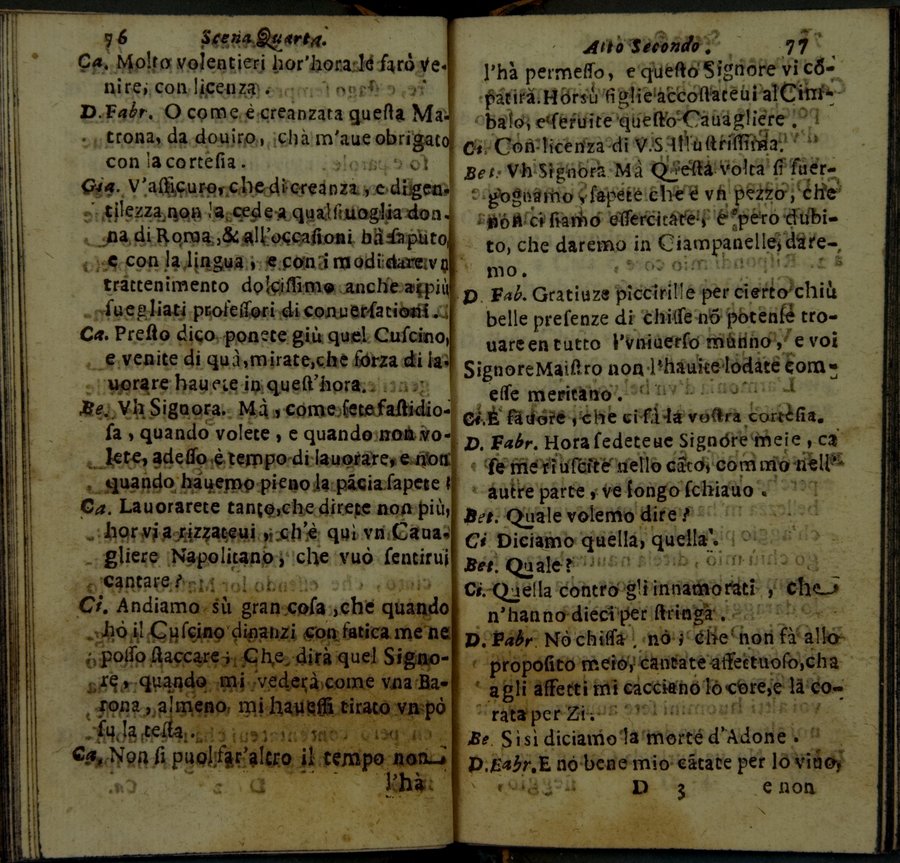 76 Scena Quarta.
Ca. Molto volentieri hor'hora le farò ve-
nire, con licenza.
D.Fabr. O come è creanzata questa Ma-
trona, da douiro, chà m'aue obrigato
con la cortesia.
Gia. V'assicuro, che di creanza, e di gen-
tilezza non la cede a qualsiuoglia don-
na di Roma, & all'occasioni hà saputo,
e con la lingua, e con i modi dare vn
trattenimento dolcissimo anche a i più
suegliati professori di conuersationi.
Ca. Presto dico ponete giù quel Cuscino,
e venite di quà, mirate, che forza di la-
uorare hauete in quest'hora.
Be. Vh Signora. Mà, come sete fastidio-
sa, quando volete, e quando non vo-
lete, adesso è tempo di lauorare, e non
quando hauemo pieno la pācia sapete?
Ca. Lauorarete tanto, che direte non più,
hor via rizzateui, ch'è quì vn Caua-
gliere Napolitano, che vuò sentirui
cantare?
Ci. Andiamo sù gran cosa, che quando
hò il Cuscino dinanzi con fatica me ne
posso staccare; Che dirà quel Signo-
re, quando mi vederà come vna Ba-
rona, almeno mi hauessi tirato vn pò
sù la testa.
Ca. Non si puol far'altro il tempo non
l'hà
Atto Secondo. 77
l'hà permesso, e questo Signore vi cō-
patirà. Horsù figlie accostateui al Cim-
balo, e seruite questo Cauagliere.
Ci. Con licenza di V.S. Illustrissima.
Bet. Vh Signora Mà Questa volta si suer-
gognamo, sapete che è vn pezzo, che
non ci siamo essercitate, e però dubi-
to, che daremo in Ciampanelle, dare-
mo.
D. Fab. Gratiuze piccirille per cierto chiù
belle presenze di chisse nō potense tro-
uare en tutto l'vniuerso munno, e voi
Signore Maistro non l'hauite lodate com-
esse meritano.
Ci. E fauore, che ci fà la vostra cortesia.
D. Fabr. Hora sedeteue Signore meie, ca
se me riuscite nello cāto, commo nell'
autre parte, ve songo schiauo.
Bet. Quale volemo dire?
Ci Diciamo quella, quella.
Bet. Quale?
Ci. Quella contro gli innamorati, che
n'hanno dieci per stringa.
D. Fabr Nò chissa nò; che non fà allo
proposito meio, cantate affectuoso, cha
agli affetti mi cacciano lo core, e la co-
rata per Zi.
Be Sì sì diciamo la morte d'Adone.
D.Fabr. E nò bene mio cātate per lo viuo,
D 3 e non